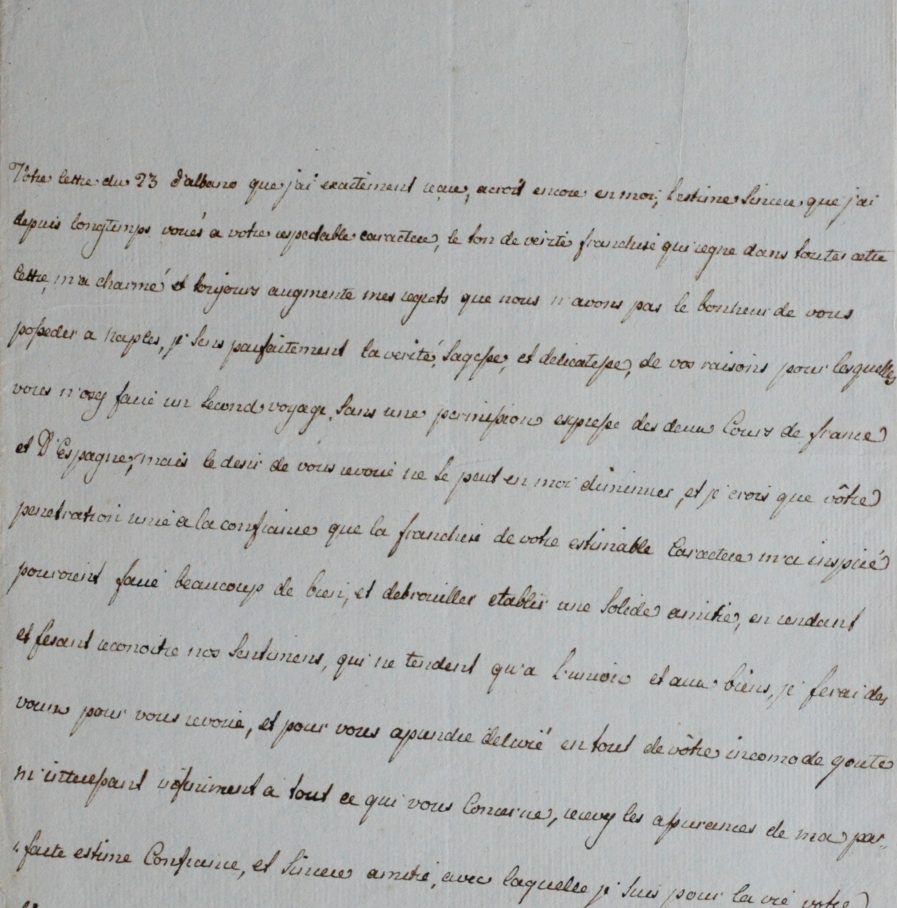 Vôtre lettre du 23 d'albano que j'ai exactement reçue, acroit encore en moi, l'estime sincere que j'ai
depuis longtemps vouës a votre respectable caractere, le ton de verité franchise qui regne dans toutes cette
lettre, m'a charmé et toujours augmente mes regrets que nous n'avons pas le bonheur de vous
posseder a naples, je sens parfaitement la verité, sagesse, et delicatesse, de vos raisons pour lesquelles
vous n'osez faire un second voyage, sans une permission expresse des deux Cours de france
et D'Espagne, mais le desir de vous revoire ne se peut en moi diminuer, et je crois que vôtre
penetration unie a la confiance que la franchise de votre estimable Caractere m'a inspiré
pouroient faire beaucoup de bien, et debrouiller etablir une solide amitié, en rendant
et fesant reconoitre nos sentimens, qui ne tendent qu'a l'union et aux biens, je ferai des
voeux pour vous revoire, et pour vous aprendre delivré en tout de vôtre incomode goute
m'interessant infiniment a tout ce qui vous concerne, recevez les assurances de ma par-
"faite estime Confiance, et sincere amitié, avec laquelle je suis pour la vie votre